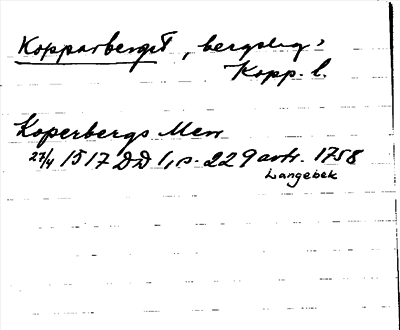 Kopparberget, bergslag,
Kopp. l.
Koperbergs Men
27/4 1517 DD 1, s. 229 avtr. 1758
Langebek